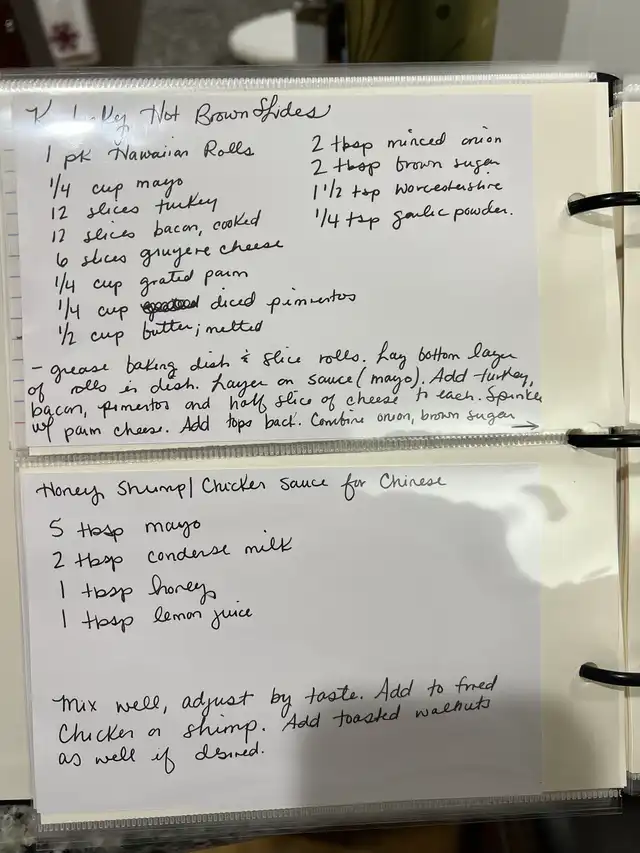 Hot Brown Slides
1 pk Hawaiian Rolls
1/4 cup mayo
12 slices turkey
12 slices bacon, cooked
6 slices gruyere cheese
1/4 cup grated parm
1/4 cup diced pimientos
1/2 cup butter; melted
2 tbsp minced onion
2 tbsp brown sugar
1 1/2 tsp Worcestershire
1/4 tsp garlic powder.
- grease baking dish & slice rolls. Lay bottom layer
of rolls in dish. Layer on sauce (mayo). Add turkey,
bacon, pimentos and half slice of cheese to each. Sprinkle
w/ parm cheese. Add tops back. Combine onion, brown sugar →
Honey Shrimp/Chicken Sauce for Chinese
5 tbsp mayo
2 tbsp condense milk
1 tbsp honey
1 tbsp lemon juice
Mix well, adjust by taste. Add to fried
Chicken or shrimp. Add toasted walnuts
as well if desired.